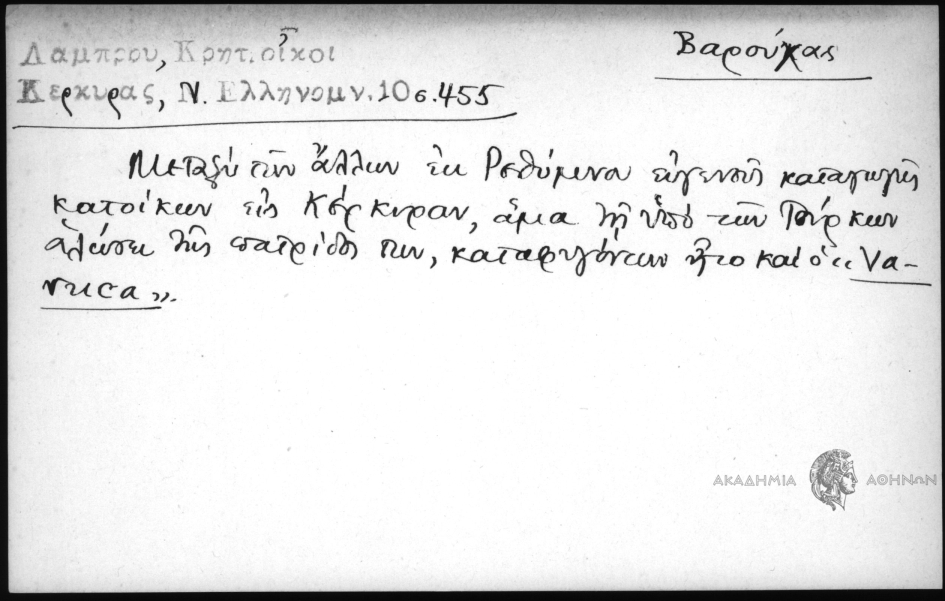 Βαρούχας
Λαμπρου, Κρητ. οἶκοι
Κερκυρας, Ν. Ελληνομν. 10 σ. 455
Μεταξύ τῶν ἄλλων ἐκ Ρεθύμνου εὐγενοῦς καταγωγῆς
κατοίκων εἰς Κέρκυραν, ἅμα τῇ ὑπό τῶν Τούρκων
ἁλώσει τῆς πατρίδος των, καταφυγόντων ἦτο καί ὁ « Va-
ruca ».
ΑΚΑΔΗΜΙΑ ΑΘΗΝΩΝ